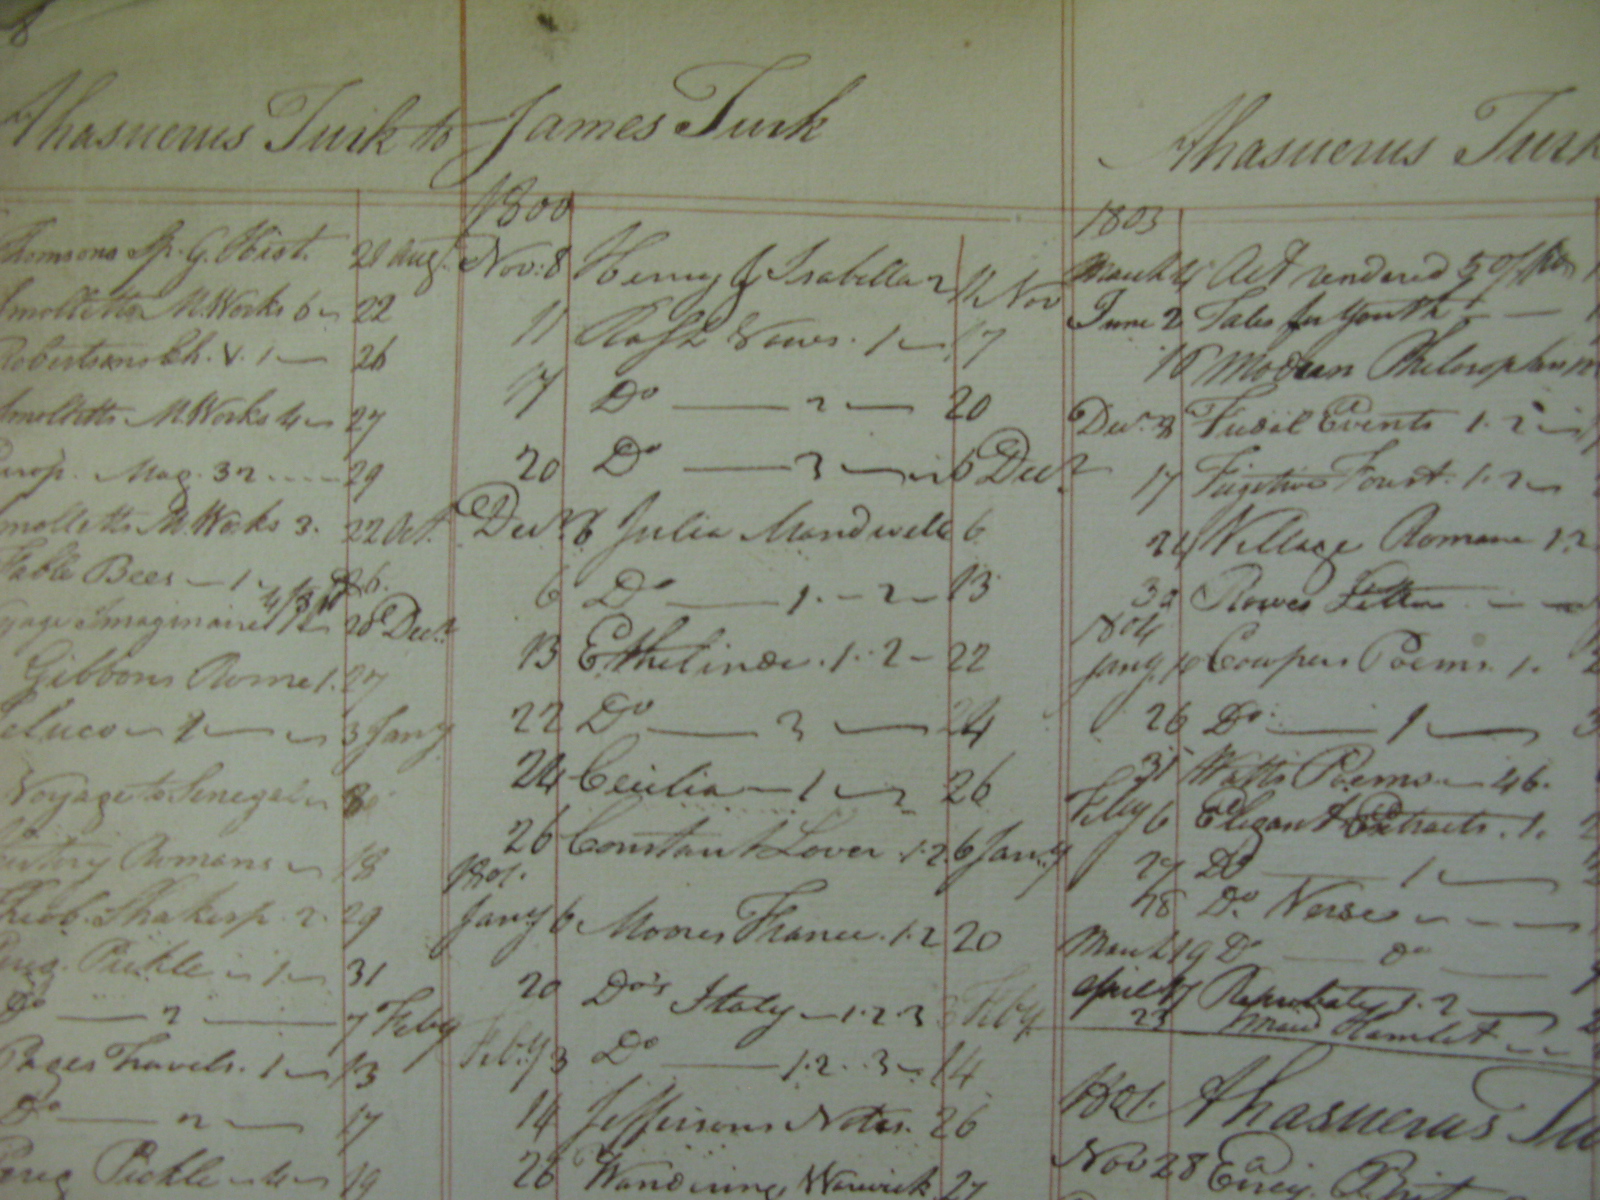 Ahasuerus Turk to James Turk
Thomsons Sp. G. Hist. 20 Aug.
Smolletts M. Works 6 22
Robertsons Ch. V. 1 26
Smolletts M. Works 4 27
Europ. Mag. 32 29
Smolletts M. Works 3. 22 Oct.
Fable Bees 1
Imaginaire 26 Decr.
Gibbons Rome 1. 27
Zeluco 1 3 Jany
Voyage to Senegal
Romans 18
Shakesp. 2. 29
Pereg. Pickle 1 31
Do 2 7 Feby
Pages Travels. 1 13
Do 2 17
Pereg Pickle 4 19
1800
Nov: 8 Henry & Isabella 2 11 Nov
11 Rash Vows. 1 17
17 Do 2 20
20 Do 3 6 Decr
Decr. 6 Julia Mandivelle 6
6 Do 1. 2 13
13 Ethelinde. 1. 2 22
22 Do 3 24
24 Cecilia 1 2 26
26 Constant Lover 1.2 6 Jany
1801.
Jany 6 Moores France. 1.2 20
20 Do's Italy 1.2.3 3 Feby
Feby 3 Do 1.2.3 14
14 Jeffersons Notes. 26
26 Wandering Warwick 27
Ahasuerus Turk
1803
March 4 Act rendered
June 2 Tales for Youth
Modern Philosophers
Decr. 8 Events 1.2
17 Fugitive Forest. 1.2
24 Village Romance 1.2
30 Rowes Letters
1804
Jany 10 Cowpers Poems. 1.
26 Do. 1
31 Watts Poems 46.
Feby 6 Elegant Extracts. 1.
27 Do 1
28 Do. Verse
March 19 Do do
April 17 Reprobate 1.2
23 Maid Hamlet
1801. Ahasuerus Tu
Nov 28 Ency. Brit